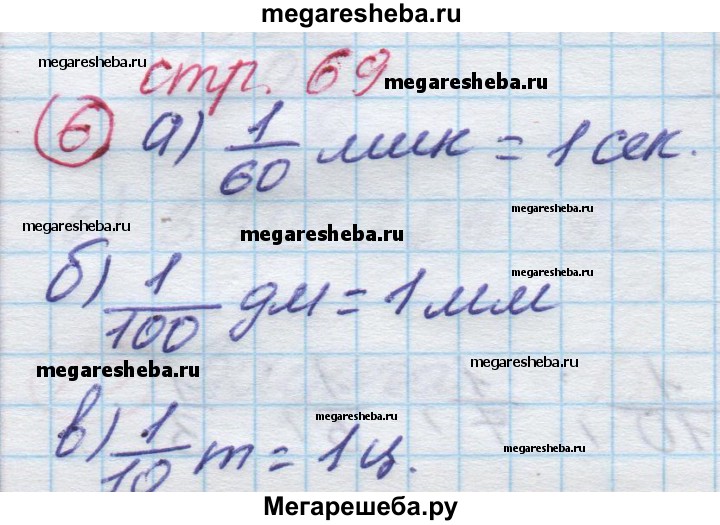 megaresheba.ru
стр. 69
megaresheba.ru
megaresheba.ru
6 а) 1/60 мин = 1 сек.
megaresheba.ru
megaresheba.ru
megaresheba.ru
б) 1/100 дм = 1 мм
megaresheba.ru
megaresheba.ru
megaresheba.ru
megaresheba.ru
в) 1/10 т = 1 ц.
megaresheba.ru
megaresheba.ru
Мегарешеба.ру